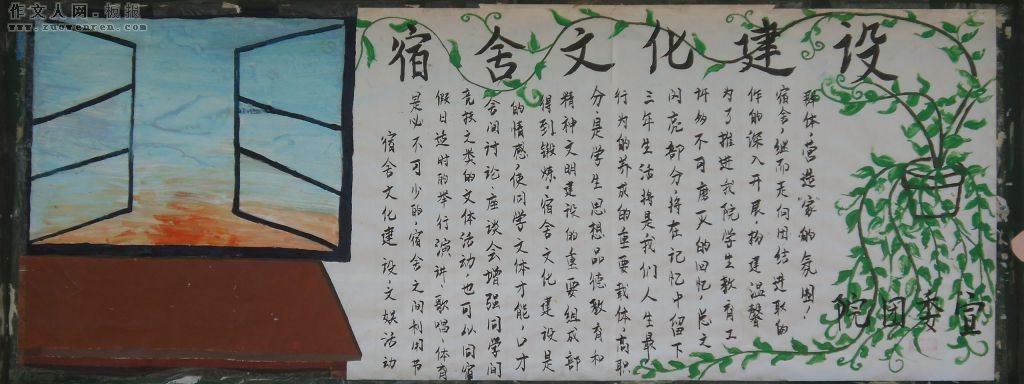 作文人网·板报
www.zuowenren.com
宿舍文化建设
宿舍文化建设,文娱活动
是必不可少的宿舍之间利用节
假日适时的举行演讲,歌唱,体育
竞技之类的文体活动,也可以同宿
舍间讨论,座谈会增强同学间
的情感,使同学文体才能,口才
得到锻炼,宿舍文化建设是
精神文明建设的重要组成部
分是学生思想品德教育和
行为的养成的重要载体,高职
三年生活将是我们人生最
闪亮部分,将在记忆中留下
许多不可磨灭的回忆,总之
为了推进我院学生教育工
作的深入开展,构建温馨
宿舍,继而 团结进取的
群体,营造“家”的氛围!
院团委宣